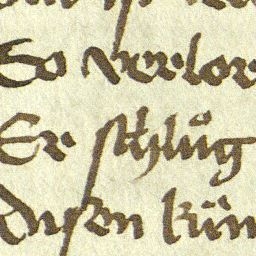 So verlore
Er schluͦg
Dysen kün